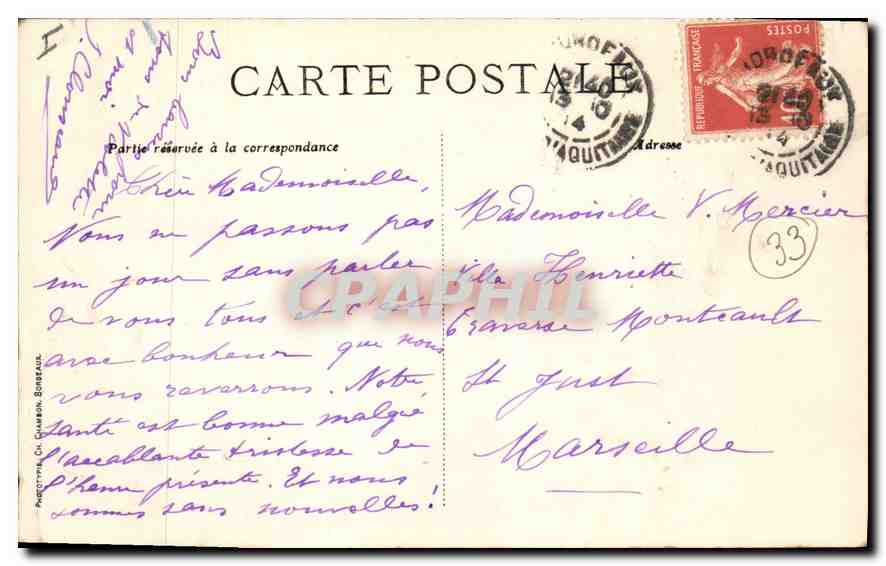 CARTE POSTALE
Partie réservée à la correspondance
Adresse
Chère Mademoiselle,
Nous ne passons pas
un jour sans parler
de vous tous et c'est
avec bonheur que nous
vous reverrons. Notre
santé est bonne malgré
l'accablante tristesse de
l'heure présente. Et nous
sommes sans nouvelles!
Bon
et moi
Mademoiselle V. Mercier
Villa Henriette
Traverse Montcault
St Just
Marseille
33
REPUBLIQUE FRANÇAISE
POSTES
10c
BORDEAUX
21 40
13 10
14
D'AQUITAINE
BORDEAUX
21 40
13 10
14
D'AQUITAINE
PHOTOTYPIE CH. CHAMBON, BORDEAUX
CPAPHIL